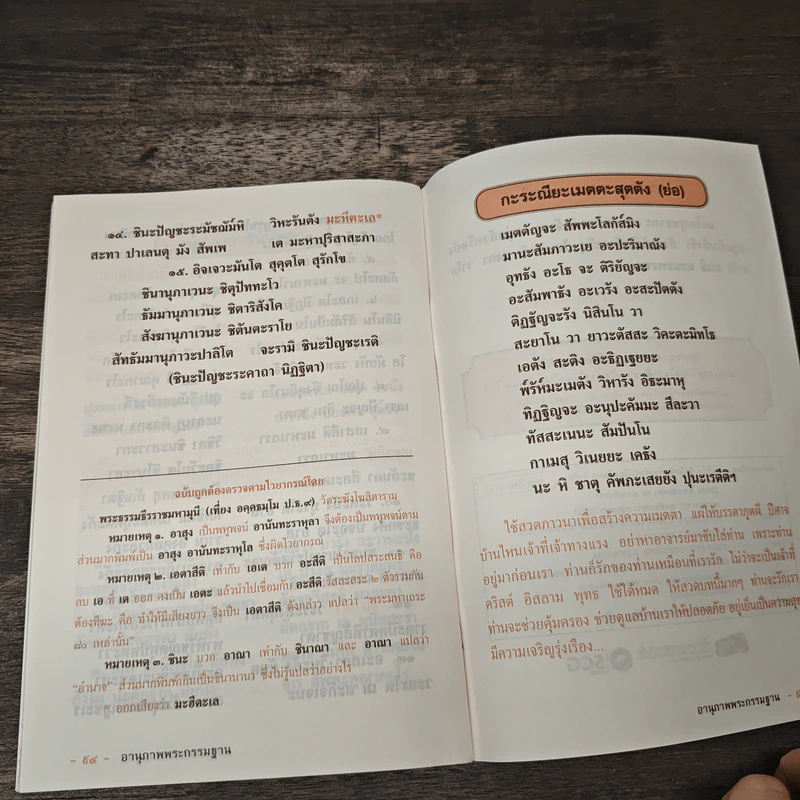 ๑๔. ชินะปัญชะระมัชฌัม์หิ วิหะรันตัง มะหีตะเล*
สะทา ปาเลนตุ มัง สัพเพ เต มะหาปุริสาสะภา
๑๕. อิจเจวะมันโต สุคุตโต สุรักโข
ชินานุภาเวนะ ชิตุปัททะโว
ธัมมานุภาเวนะ ชิตาริสังโค
สังฆานุภาเวนะ ชิตันตะราโย
สัทธัมมานุภาวะปาลิโต จะรามิ ชินะปัญชะเรติ
(ชินะปัญชะระคาถา นิฏฐิตา)
ฉบับถูกต้องตรวจตามไวยากรณ์โดย
พระธรรมธีรราชมหามุนี (เที่ยง อคฺคธมฺโม ป.ธ.๙) วัดระฆังโฆสิตาราม
หมายเหตุ ๑. อาสุง เป็นพหูพจน์ อานันทะราหุลา จึงต้องเป็นพหูพจน์ตาม
ส่วนมากพิมพ์เป็น อาสุง อานันทะราหุโล ซึ่งผิดไวยากรณ์
หมายเหตุ ๒. เอตาสีติ เท่ากับ เอเต บวก อะสีติ เป็นโลปสระสนธิ คือ
ลบ เอ ที่ เต ออก คงเป็น เอตะ แล้วนำไปเชื่อมกับ อะสีติ รัสสะสระ ๒ ตัวรวมกัน
ต้องทีฆะ คือ ทำให้มีเสียงยาว จึงเป็น เอตาสีติ ดังกล่าว แปลว่า "พระมหาเถระ
๘๐ เหล่านั้น"
หมายเหตุ ๓. ชินะ บวก อาณา เท่ากับ ชินาณา และ อาณา แปลว่า
"อำนาจ" ส่วนมากพิมพ์เกินเป็นชินานานา ซึ่งไม่รู้แปลว่าอย่างไร
* ออกเสียงว่า มะฮีตะเล
- ๕๔ - อานุภาพพระกรรมฐาน
กะระณียะเมตตะสุตตัง (ย่อ)
เมตตัญจะ สัพพะโลกัส์มิง
มานะสัมภาวะเย อะปะริมาณัง
อุทธัง อะโธ จะ ติริยัญจะ
อะสัมพาธัง อะเวรัง อะสะปัตตัง
ติฏฐัญจะรัง นิสินโน วา
สะยาโน วา ยาวะตัสสะ วิคะตะมิทโธ
เอตัง สะติง อะธิฏเฐยยะ
พ์รัห์มะเมตัง วิหารัง อิธะมาหุ
ทิฏฐิญจะ อะนุปะคัมมะ สีละวา
ทัสสะเนนะ สัมปันโน
กาเมสุ วิเนยยะ เคธัง
นะ หิ ชาตุ คัพภะเสยยัง ปุนะเรตีติฯ
ใช้สวดภาวนาเพื่อสร้างความเมตตา แผ่ให้บรรดาภูตผี ปีศาจ
บ้านไหนเจ้าที่เจ้าทางแรง อย่าหาอาจารย์มาขับไล่ท่าน เพราะท่าน
อยู่มาก่อนเรา ท่านก็รักของท่านเหมือนที่เรารัก ไม่ว่าจะเป็นเจ้าที่
คริสต์ อิสลาม พุทธ ใช้ได้หมด ให้สวดบทนี้มากๆ ท่านจะรักเรา
ท่านจะช่วยคุ้มครอง ช่วยดูแลบ้านเราให้ปลอดภัย อยู่เย็นเป็นความสุข
มีความเจริญรุ่งเรือง...
อานุภาพพระกรรมฐาน -